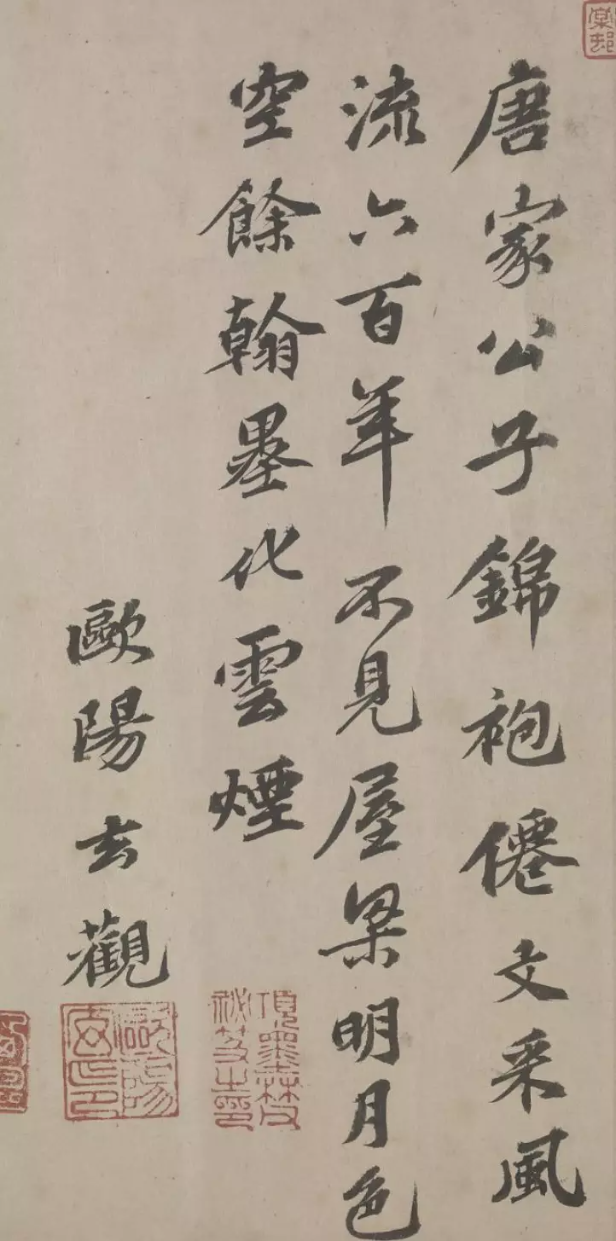 唐家公子錦袍僊文采風
流六百年不見屋梁明月色
空餘翰墨化雲煙
歐陽玄觀
棠邨
項墨林父
祕笈之印
歐陽
玄印